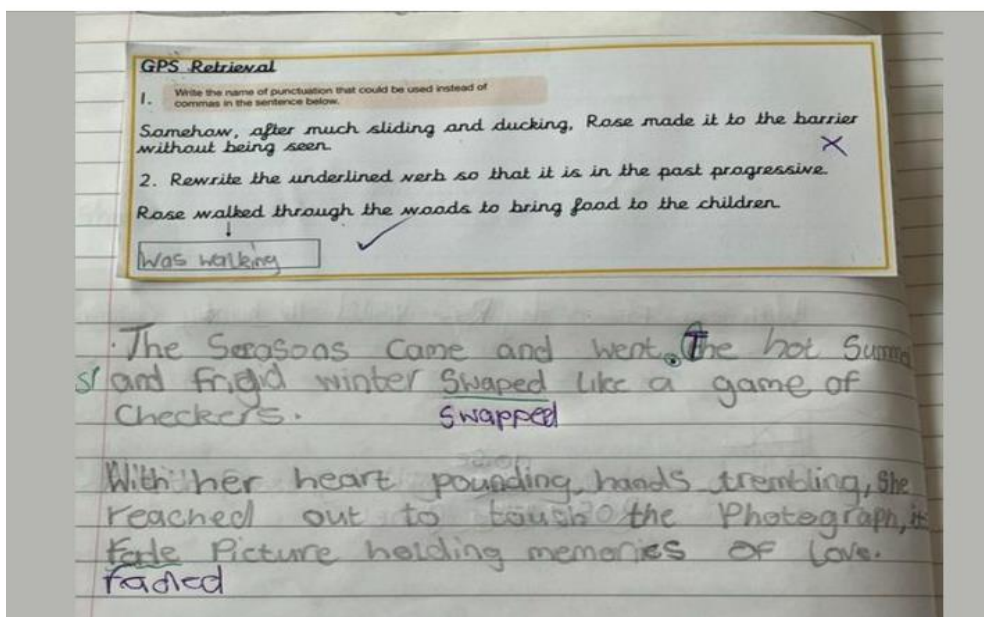 GPS Retrieval
1. Write the name of punctuation that could be used instead of
commas in the sentence below.
Somehow, after much sliding and ducking, Rose made it to the barrier
without being seen.
2. Rewrite the underlined verb so that it is in the past progressive.
Rose walked through the woods to bring food to the children.
Was walking
The Serasons came and went. The hot Summer
sp and frigid winter Swaped like a game of
Checkers. swapped
With her heart pounding, hands trembling, She
reached out to touch the Photograph, it
fade Picture holding memories of love.
faded